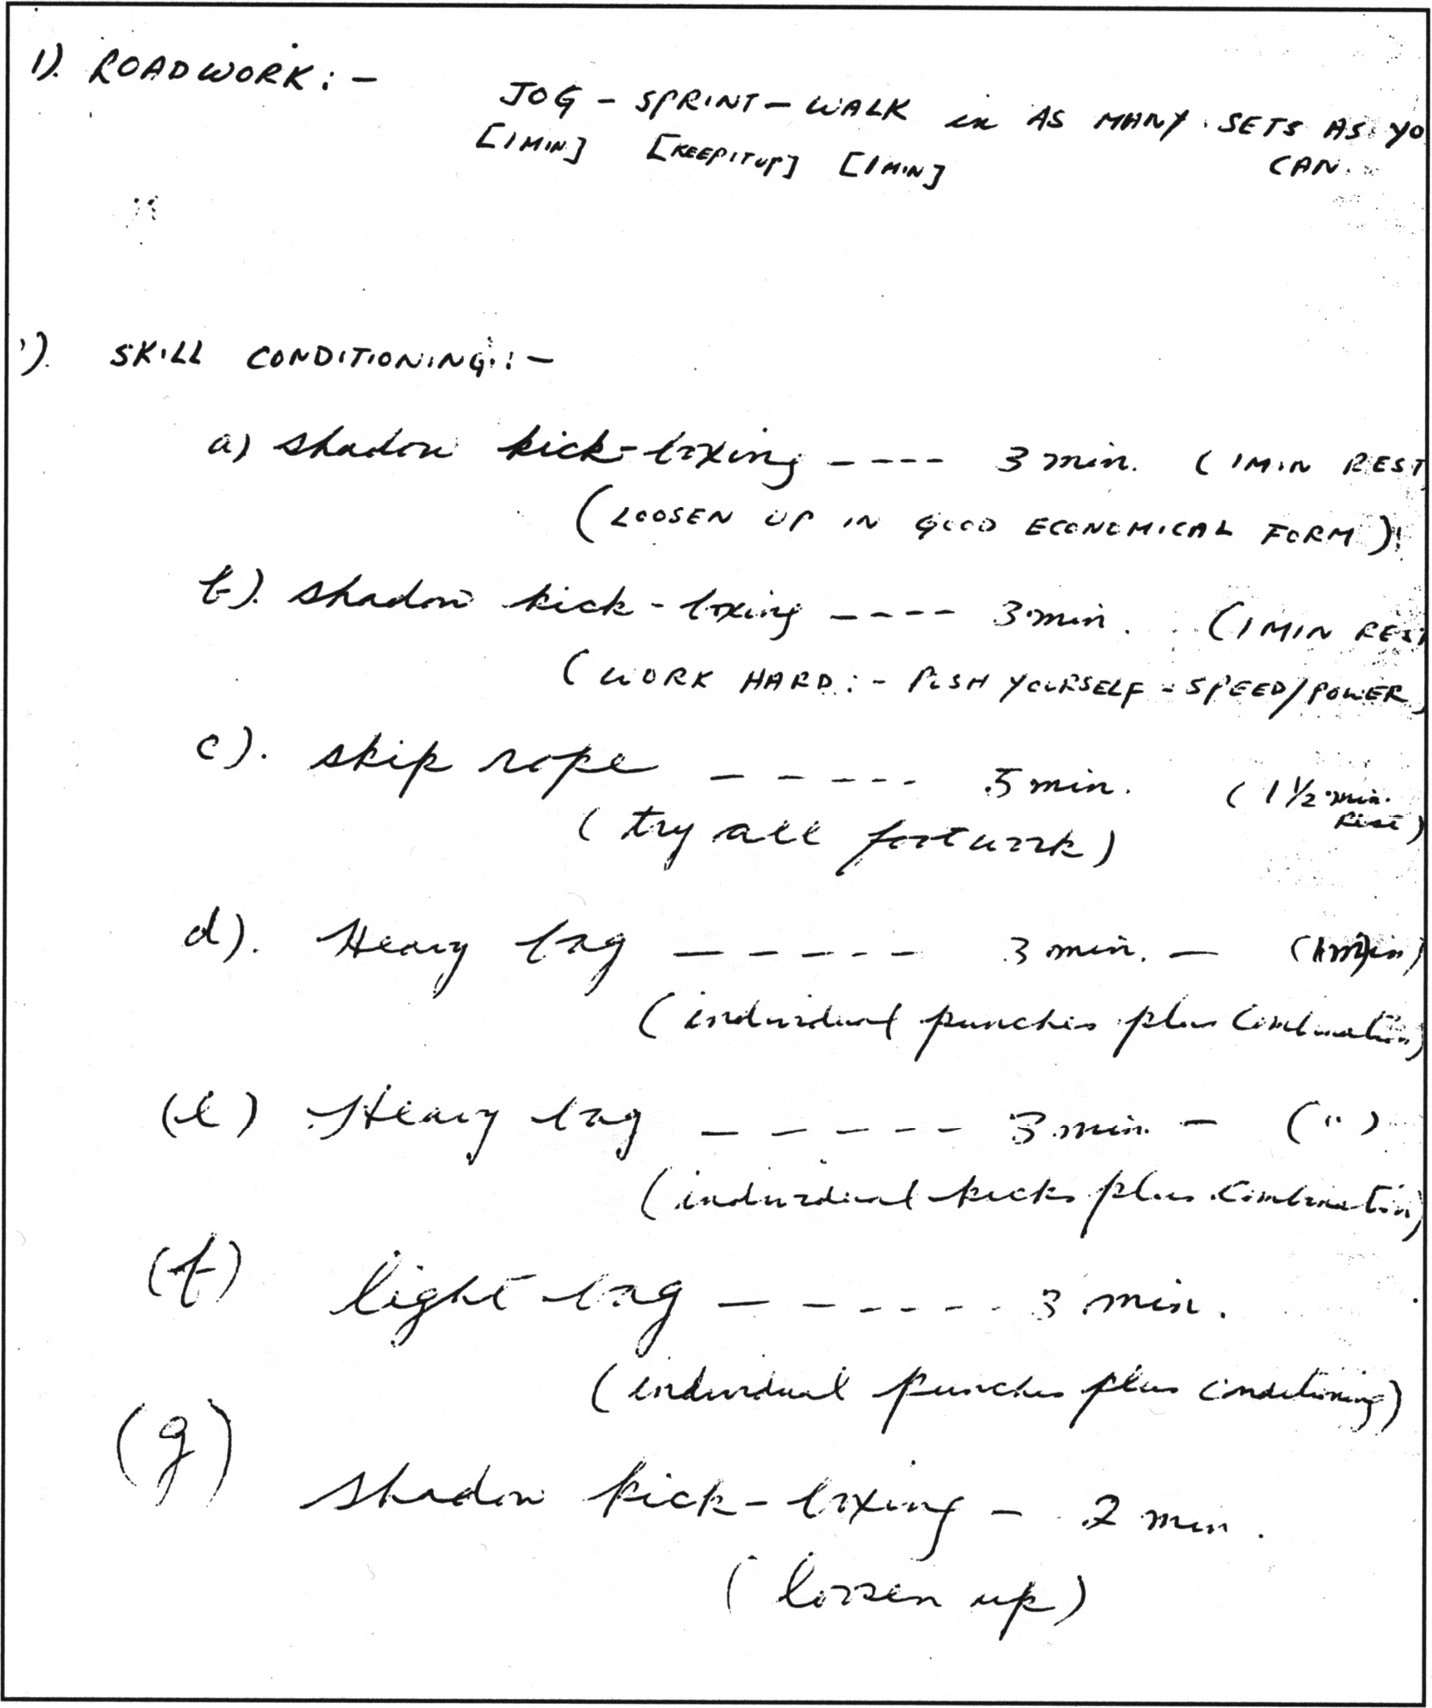 1). ROADWORK:-
JOG - SPRINT - WALK in AS MANY SETS AS YO
[1 MIN] [KEEP IT UP] [1 MIN] CAN.
). SKILL CONDITIONING:-
a) shadow kick-boxing ---- 3 min. (1 MIN REST
(LOOSEN UP IN GOOD ECONOMICAL FORM)
b). shadow kick-boxing ---- 3 min. (1 MIN REST
(WORK HARD:- PUSH YOURSELF - SPEED/POWER)
c). skip rope ----- 5 min. (1 1/2 min. Rest)
(try all footwork)
d). Heavy bag ----- 3 min. - (1 min)
(individual punches plus combination)
(e) Heavy bag ----- 3 min - (")
(individual kicks plus combination)
(f) light bag ------ 3 min.
(individual punches plus conditioning)
(g) shadow kick-boxing - 2 min.
(loosen up)